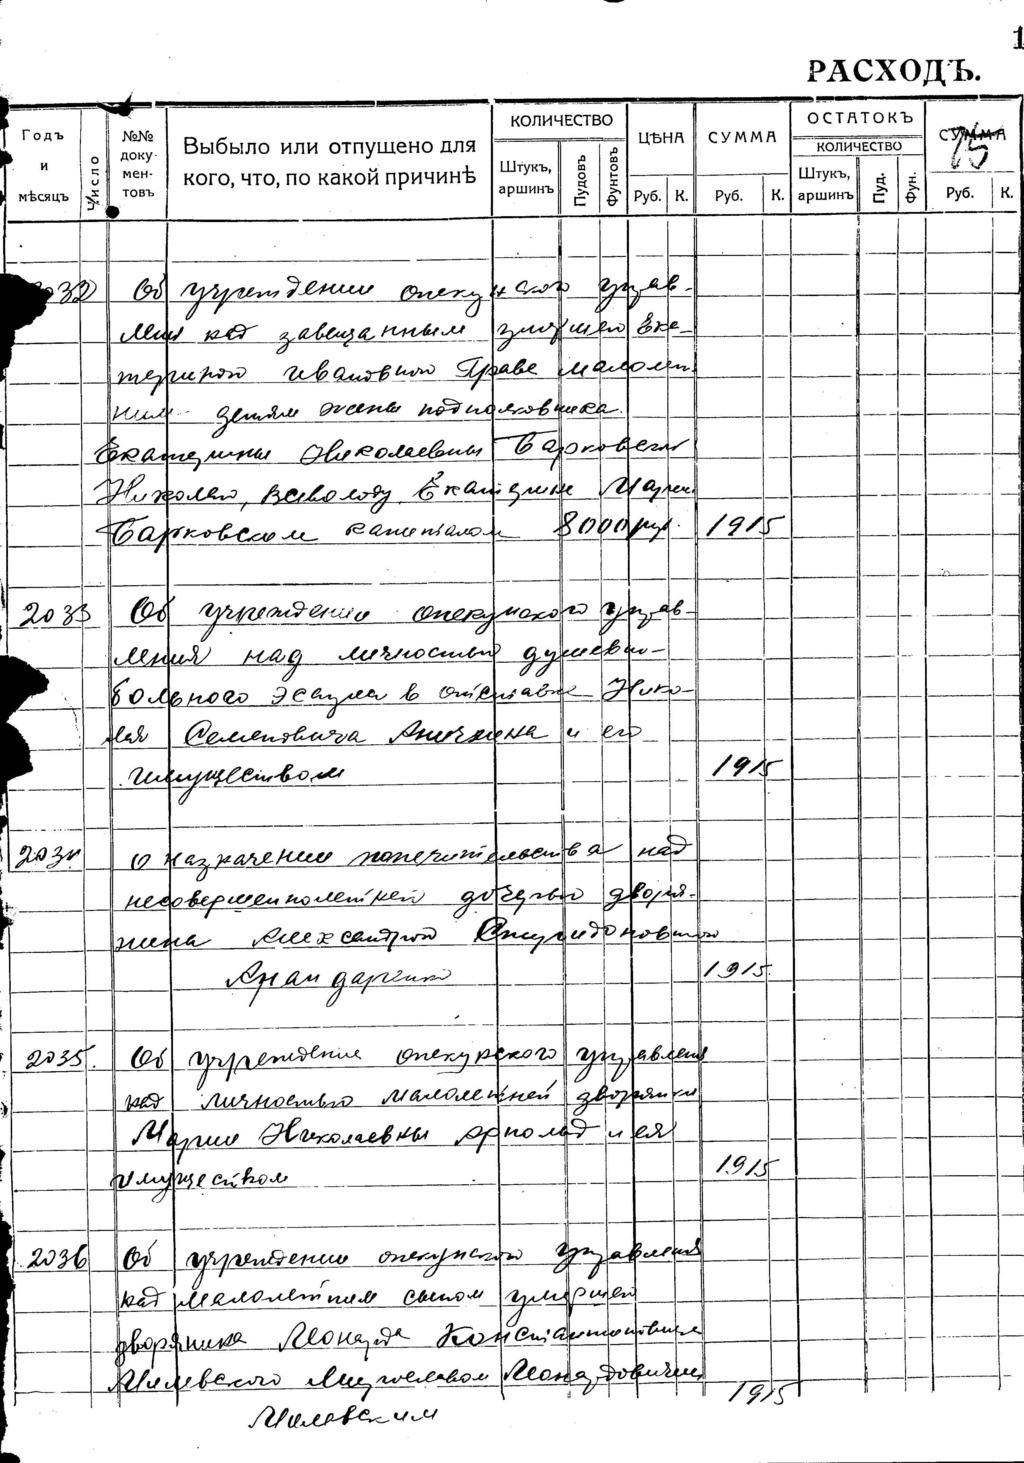 1
РАСХОДЪ.
Годъ и мѣсяцъ
Число
№№ доку-мен-товъ
Выбыло или отпущено для кого, что, по какой причинѣ
КОЛИЧЕСТВО
Штукъ, аршинъ
Пудовъ
Фунтовъ
ЦѢНА
Руб. К.
СУММА
Руб. К.
ОСТАТОКЪ
КОЛИЧЕСТВО
Штукъ, аршинъ
Пуд.
Фун.
СУММА
15
Руб. К.
2032 Об учреждении опекунского управ-
над завещанным умершей Ека-
териной Ивановной Граве малолет
ним детям жены подполковника
Екатерины Николаевны Барковской
Николаю, Всеволоду, Екатерине Марии
Барковским капиталом 8000 руб. 1915
2033 Об учреждении опекунского управ-
ления над личностью душевно-
больного эсаула в отставке Нико-
лая Семеновича Аничкина и его
имуществом 1915
2034 О назначении попечительства над
несовершеннолетней дочерью дворя-
нина Александрой Спиридоновной
Арандаренко 1915.
2035. Об учреждении опекунского управления
над личностью малолетней дворянки
Марии Николаевны Арнольд и ея
имуществом 1915
2036 Об учреждении опекунского управления
над малолетним сыном умершего
дворянина Леонарда Константиновича
Милевского Мирославом Леонардовичем
Милевским 1915